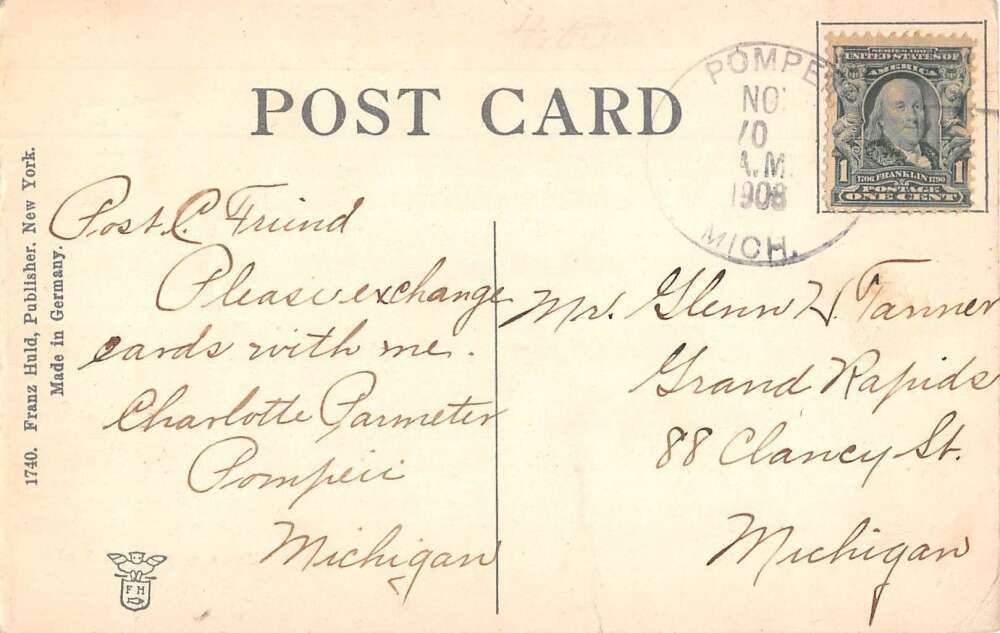 4.00
POST CARD
1740. Franz Huld, Publisher. New York.
Made in Germany.
Post C. Friend
Please exchange
cards with me.
Charlotte Parmeter
Pompeii
Michigan
F H
POMPE
NO
A.M.
1908
MICH.
SERIES 1902
UNITED STATES OF
AMERICA
1 1
1706 FRANKLIN 1790
POSTAGE
ONE CENT
Mr. Glenn H. Tanner
Grand Rapids
88 Clancy St.
Michigan